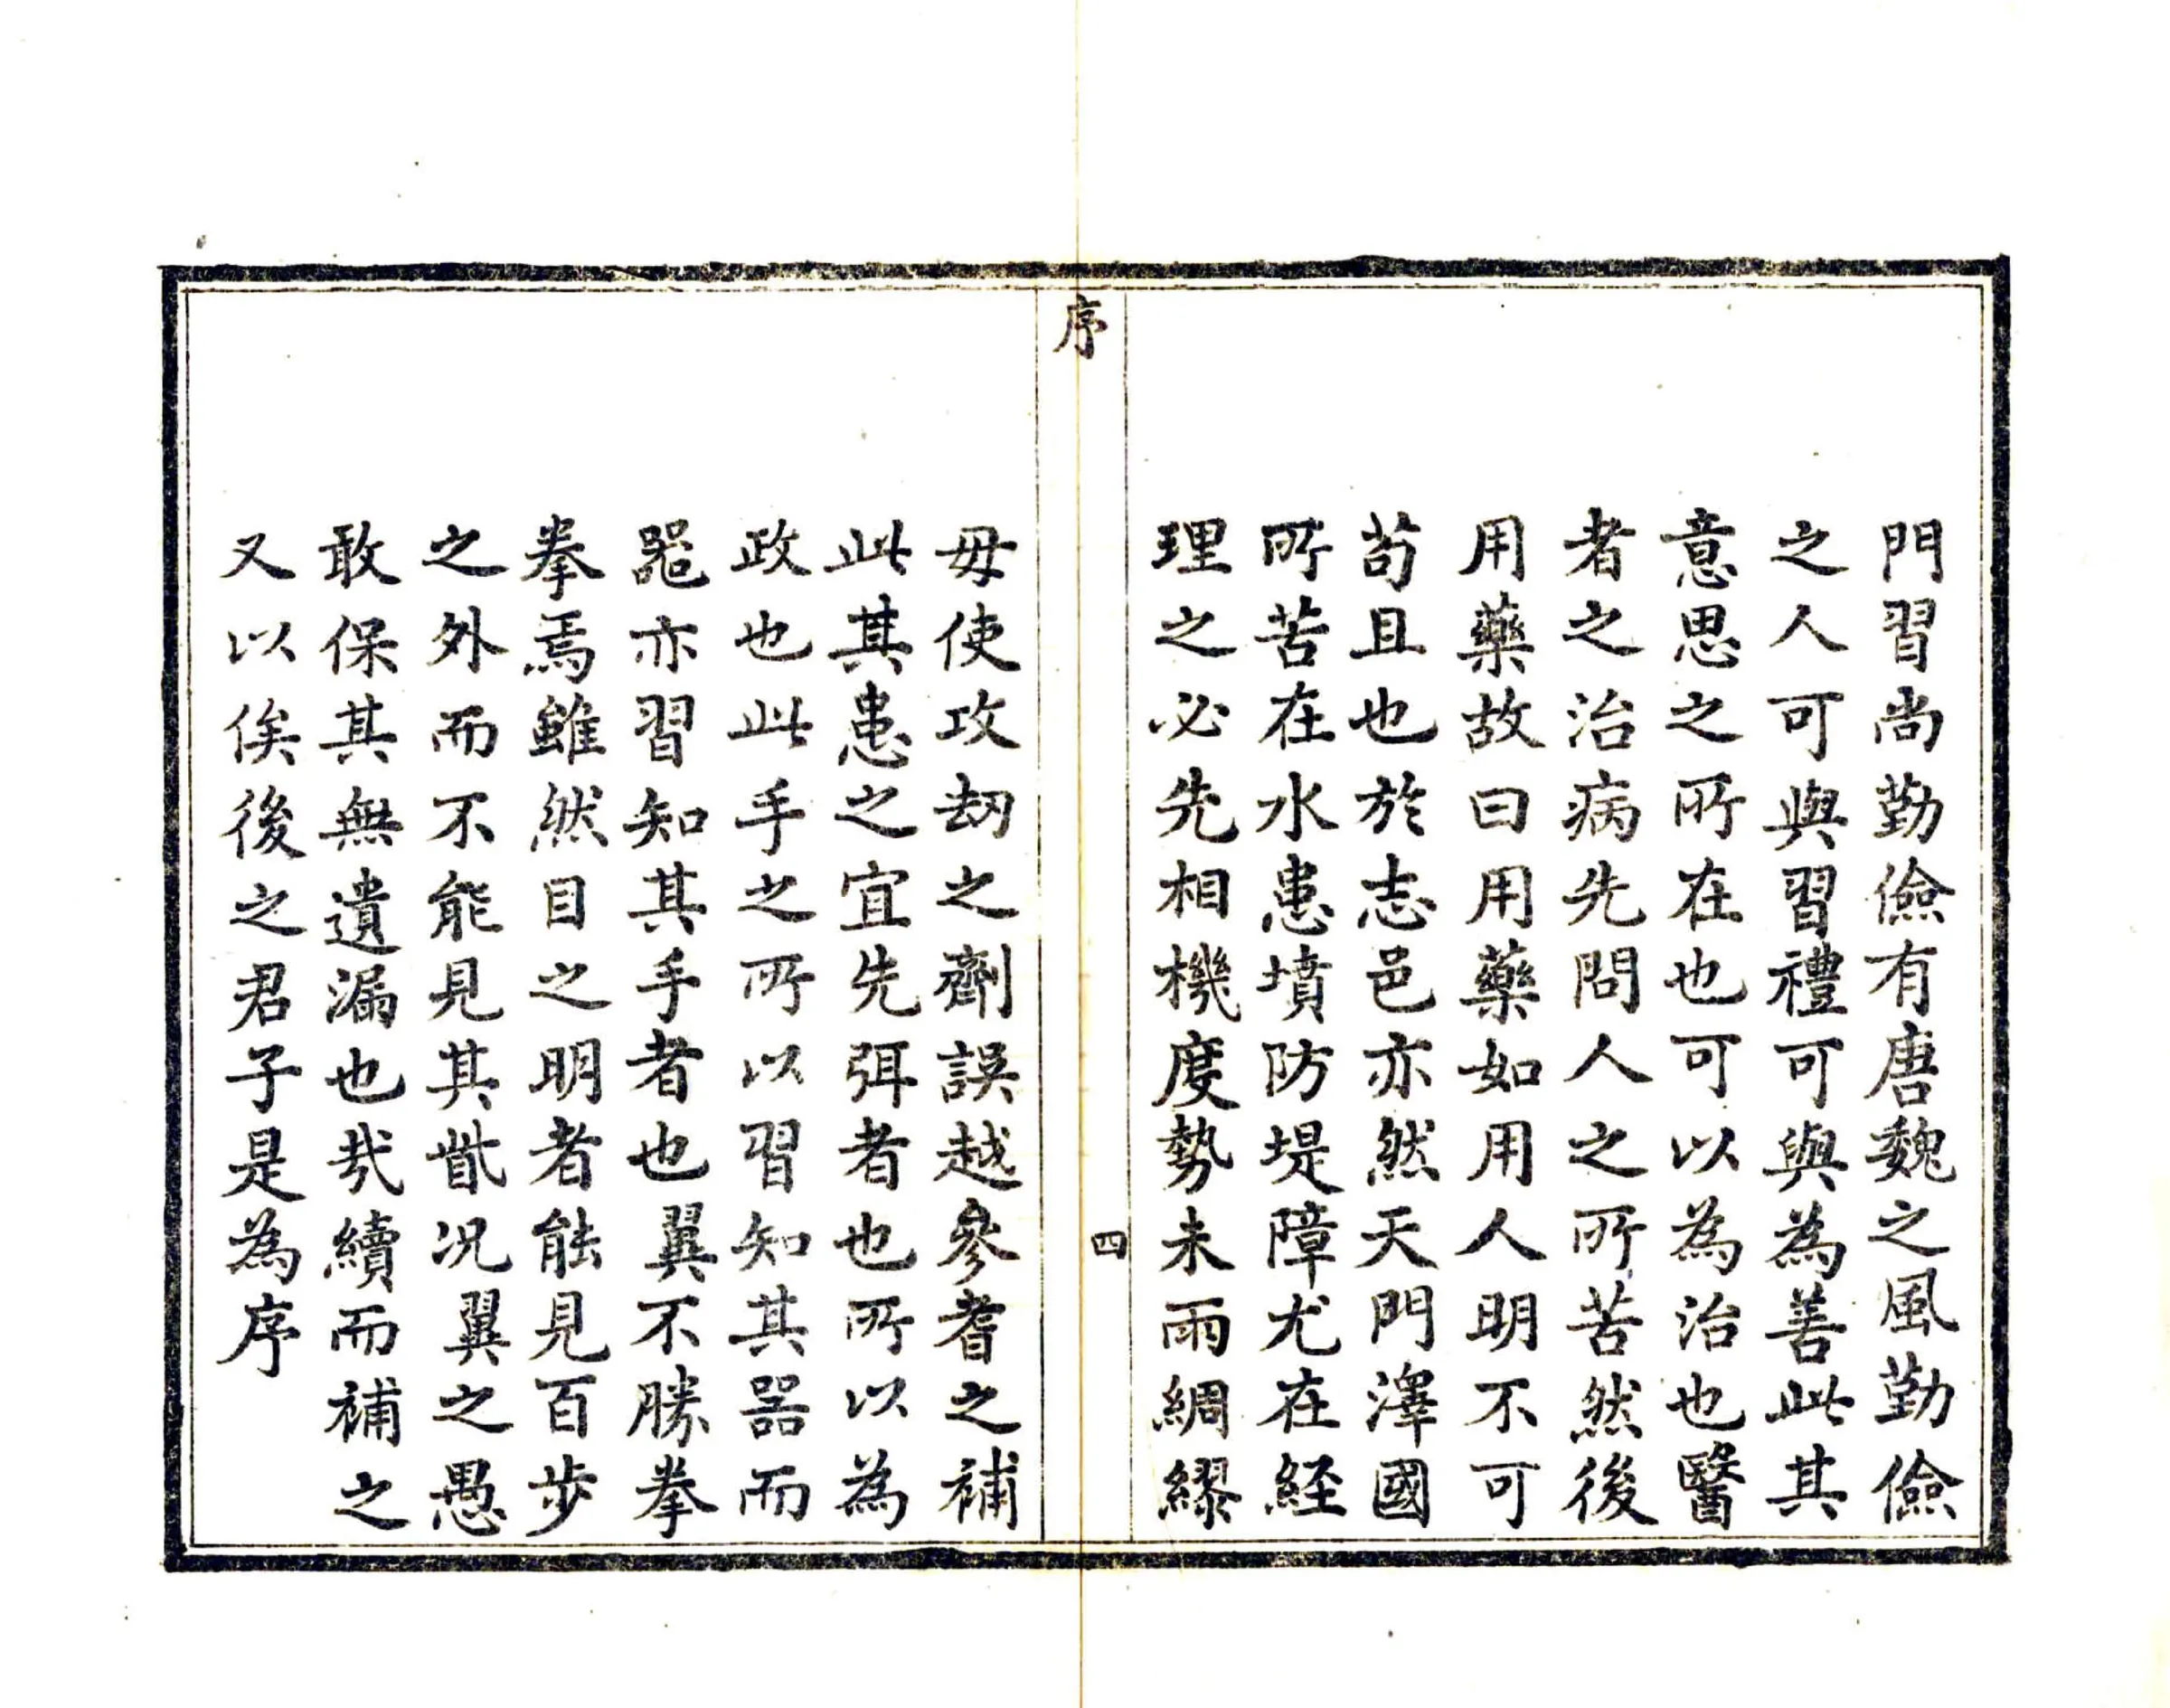 門習尚勤儉有唐魏之風勤儉
之人可與習禮可與為善此其
意思之所在也可以為治也醫
者之治病先問人之所苦然後
用藥故曰用藥如用人明不可
苟且也於志邑亦然天門澤國
所苦在水患墳防堤障尤在経
理之必先相機度勢未雨綢繆
序
四
毋使攻刼之劑誤越參耆之補
此其患之宜先弭者也所以為
政也此手之所以習知其器而
噐亦習知其手者也翼不勝拳
拳焉雖然目之明者能見百步
之外而不能見其眥况翼之愚
敢保其無遺漏也㦲續而補之
又以俟後之君子是為序